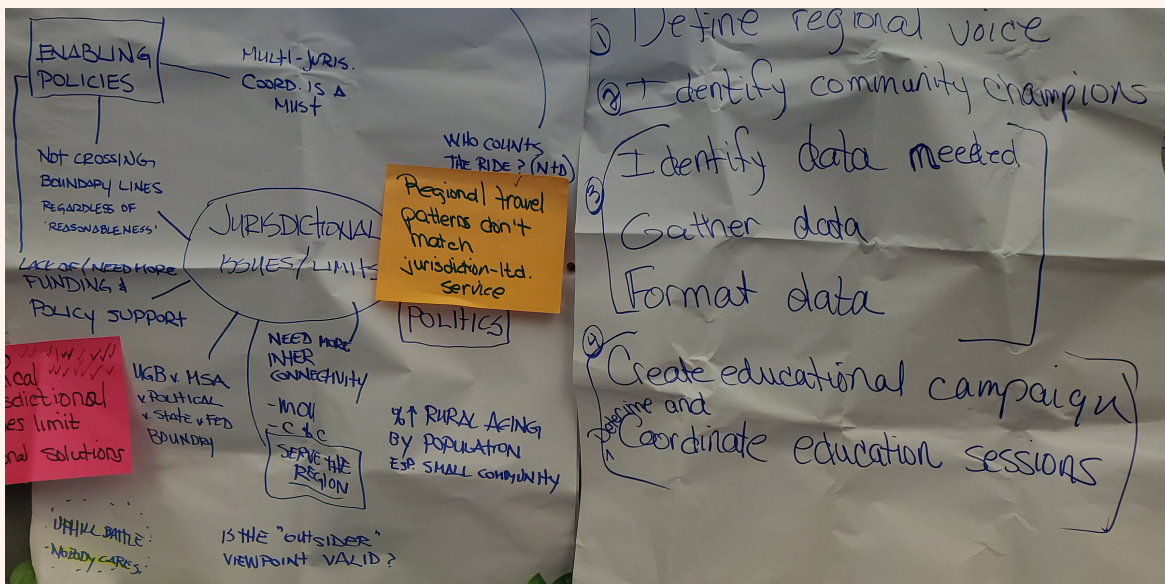 ENABLING
POLICIES
MULTI-JURIS.
COORD. IS A
MUST
NOT CROSSING
BOUNDARY LINES
REGARDLESS OF
'REASONABLENESS'
WHO COUNTS
THE RIDE? (NTD)
Regional travel
patterns don't
match
jurisdiction-ltd.
service
JURISDICTIONAL
ISSUES/LIMITS
LACK OF/NEED MORE
FUNDING &
POLICY SUPPORT
POLITICS
ical
sdictional
es limit
nal solutions
UGB v. MSA
v. POLITICAL
v. STATE v FED
BOUNDRY
NEED MORE
INTER
CONNECTIVITY
- MOU
- C & C
SERVE THE
REGION
%↑ RURAL AGING
BY POPULATION
ESP SMALL COMMUNITY
UPHILL BATTLE
NOBODY CARES.
IS THE "OUTSIDER"
VIEWPOINT VALID?
① Define regional voice
② Identify community champions
③ Identify data needed
Gather data
Format data
④ Create educational campaign
Determine and
Coordinate education sessions